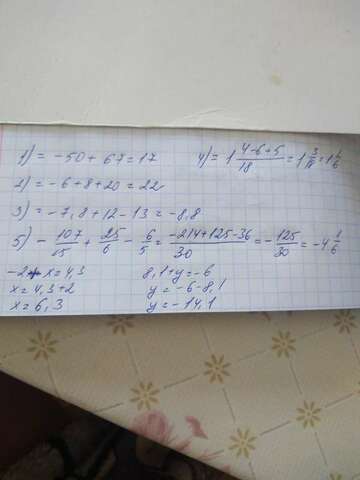 1) = -50 + 67 = 17
4) = 1 4-6+5/18 = 1 3/18 = 1 1/6
2) = -6+8+20 = 22
3) = -7,8+12-13 = -8,8
5) - 107/15 + 25/6 - 6/5 = -214+125-36/30 = - 125/30 = -4 1/6
-2 + x = 4,3
8,1+y = -6
x = 4,3+2
y = -6-8,1
x = 6,3
y = -14,1